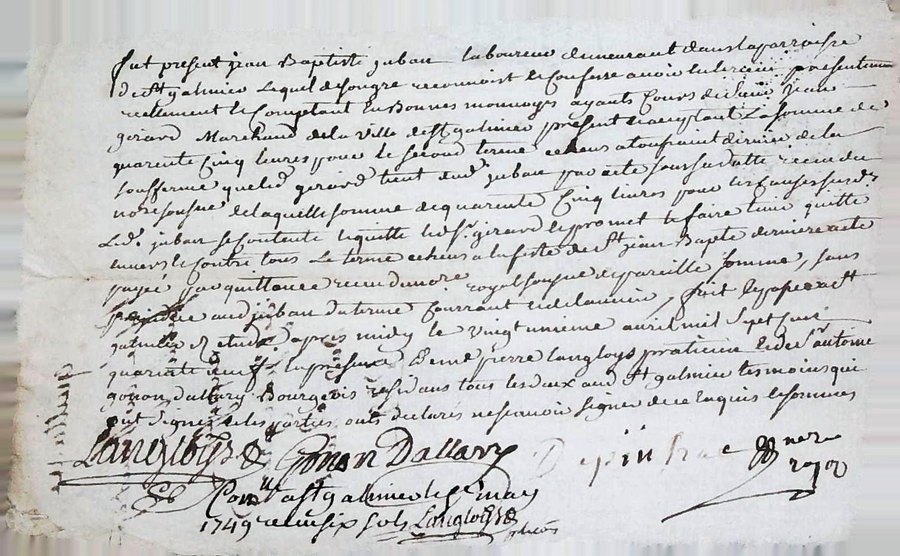 fut present jean Baptiste juban laboureur demeurant dans la parroisse
de St galmier lequel de son gre reconnoist et confesse avoir eu et receu presentement
reellement et comptant en Bonnes monnoyes ayants cours de sieur jean
gerard Marchand de la ville de St galmier present et acceptant La somme de
quarente Cinq livres pour le second terme echeus a toussaint dernier de la
soufferme que led. gerard tient dud. juban par acte sous sa datte receu du
no.re sousne de laquelle somme de quarente Cinq livres pour les causes susd.
Led. juban se contente et quitte led. Sr. gerard et promet le faire tenir quitte
envers et contre tous Le terme echeus a la feste de St jean Bapte derniere esté
payée par quittance receu du no.re royal sousne de pareille somme, sans
prejudice aud. juban du terme Courrant et de l'avenir, fait et passé a St
galmier etude apres midy le vingt unieme avril mil sept cens
quarente neuf en presence de me pierre langloys praticien et de sr antoine
gonon dallary Bourgeois residans tous les deux aud. St galmier tesmoins qui
ont signés et les parties ont declarés ne scavoir signer de ce enquis et sommes
Langloys Gonon Dallary
Conlle a St galmier le may
1749 receu six sols Langloys